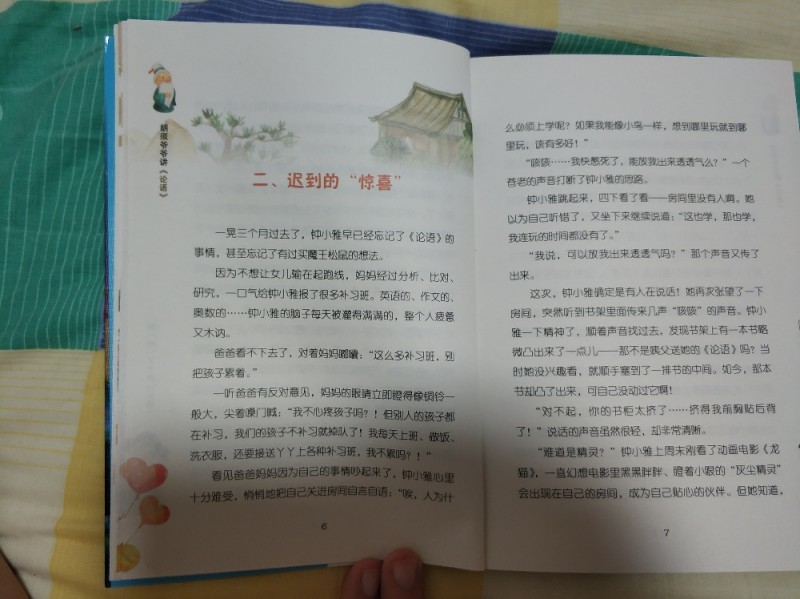 胡狲爷爷讲《论语》
二、迟到的“惊喜”
一晃三个月过去了，钟小雅早已经忘记了《论语》的
事情，甚至忘记了有过买魔王松鼠的想法。
因为不想让女儿输在起跑线，妈妈经过分析、比对、
研究，一口气给钟小雅报了很多补习班。英语的、作文的、
奥数的……钟小雅的脑子每天被灌得满满的，整个人疲惫
又木讷。
爸爸看不下去了，对着妈妈嘟囔：“这么多补习班，别
把孩子累着。”
一听爸爸有反对意见，妈妈的眼睛立即瞪得像铜铃一
般大，尖着嗓门喊：“我不心疼孩子吗？！但别人的孩子都
在补习，我们的孩子不补习就掉队了！我每天上班、做饭、
洗衣服，还要接送丫丫上各种补习班，我不累吗？！”
看见爸爸妈妈因为自己的事情吵起来了，钟小雅心里
十分难受，悄悄地把自己关进房间自言自语：“唉，人为什
6
么必须上学呢？如果我能像小鸟一样，想到哪里玩就到哪
里玩，该有多好！”
“咳咳……我快憋死了，能放我出来透透气么？”一个
苍老的声音打断了钟小雅的思路。
钟小雅跳起来，四下看了看——房间里没有人啊。她
以为自己听错了，又坐下来继续说道：“这也学，那也学，
我连玩的时间都没有了。”
“我说，可以放我出来透透气吗？”那个声音又传了
出来。
这次，钟小雅确定是有人在说话！她再次张望了一下
房间，突然听到书架里面传来几声“咳咳”的声音。钟小
雅一下精神了，顺着声音找过去，发现书架上有一本书略
微凸出来了一点儿——那不是姨父送她的《论语》吗？当
时她没兴趣看，就顺手塞到了一排书的中间。如今，那本
书却凸了出来，可自己没动过它啊！
“对不起，你的书柜太挤了……挤得我前胸贴后背
了！”说话的声音虽然很轻，却非常清晰。
“难道是精灵？”钟小雅上周末刚看了动画电影《龙
猫》，一直幻想电影里黑黑胖胖、瞪着小眼的“灰尘精灵”
会出现在自己的房间，成为自己贴心的伙伴。但她知道，
7